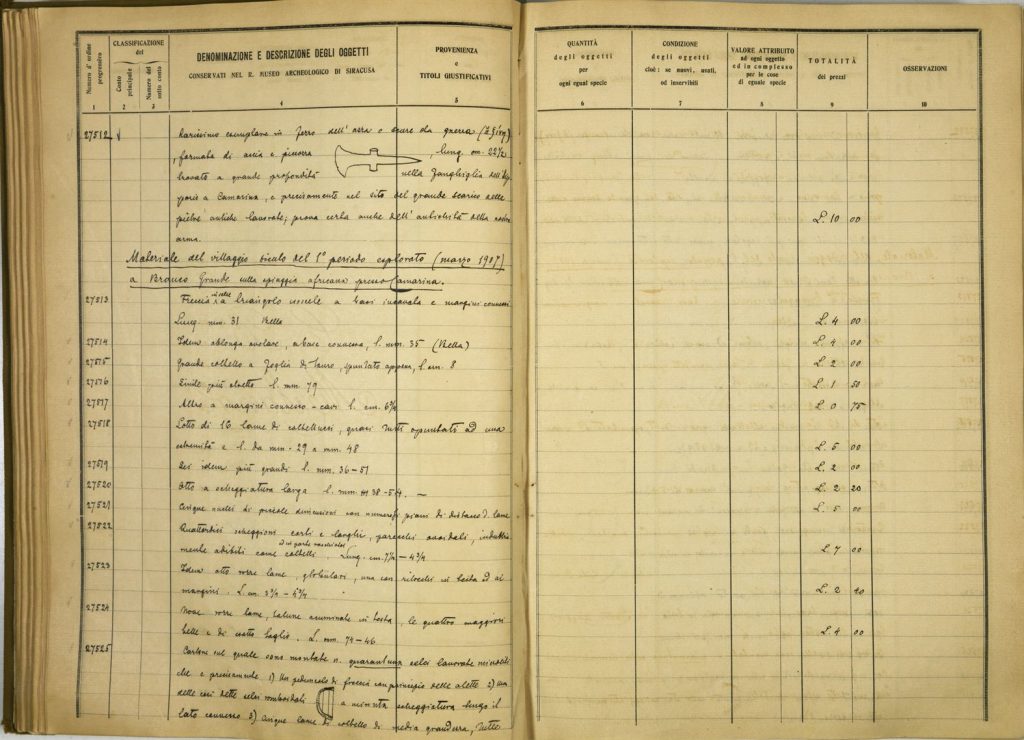 Numero d'ordine progressivo
CLASSIFICAZIONE del
Conto principale
Numero del sotto conto
DENOMINAZIONE E DESCRIZIONE DEGLI OGGETTI
CONSERVATI NEL R. MUSEO ARCHEOLOGICO DI SIRACUSA
PROVENIENZA
e
TITOLI GIUSTIFICATIVI
QUANTITÀ
degli oggetti
per
ogni egual specie
CONDIZIONE
degli oggetti
cioè: se nuovi, usati,
od inservibili
VALORE ATTRIBUITO
ad ogni oggetto
ed in complesso
per le cose
di eguale specie
TOTALITÀ
dei prezzi
OSSERVAZIONI
1 2 3 4 5 6 7 8 9 10
27512 Rarissimo esemplare in ferro dell' ascia o scure da guerra
formata di ascia e piccozza, lung. cm. 22½
trovato a grande profondità nella fanghiglia dell'
a Camarina, e precisamente nel sito del grande scarico delle
pietre antiche lavorate; prova certa anche dell' antichità della nostra
arma. L. 10 00
Materiale del villaggio siculo del 1° periodo esplorato (marzo 1907)
a Branco Grande sulla spiaggia africana presso Camarina.
27513 Freccia a triangolo a basi incavata e margini connessi
Lung. mm. 31 Bella L. 4 00
27514 Idem oblonga ovolare, a base connessa, l. mm. 35 (Bella) L. 4 00
27515 Grande coltello a foglia di lauro, spuntato appena, l. cm. 8 L. 2 00
27516 Simile più stretto l. mm. 79 L. 1 50
27517 Altro a margini connesso-cavi l. cm. 6¾ L. 0 75
27518 Lotto di 12 lame di coltellucci, quasi tutti spuntati ad una
estremità e l. da mm. 29 a mm. 48 L. 5 00
27519 Sei idem più grandi l. mm. 36-51 L. 2 00
27520 Otto a scheggiatura larga l. mm. 38-54. — L. 2 20
27521 Cinque nuclei di piccole dimensioni con numerosi piani di distacco d. lame L. 5 00
27522 Quattordici scheggioni corti e larghi, parecchi ovoidali,
adibiti come coltelli. Lung. cm. 7¼ - 4¾ L. 7 00
27523 Idem otto rozze lame, globulari, una con ritocchi in testa ed ai
margini. L. cm. L. 2 40
27524 Nove rozze lame, talune acuminate in testa, le quattro maggiori
belle e di taglio. L. mm. 74-46 L. 4 00
27525 Cartone sul quale sono montate n. quarantuna selci lavorate
che e precisamente 1) Un peduncolo di freccia con principio delle alette 2) Una
delle così dette selci romboidali a minuta scheggiatura lungo il
lato connesso 3) Cinque lame di coltello di media grandezza, tutte